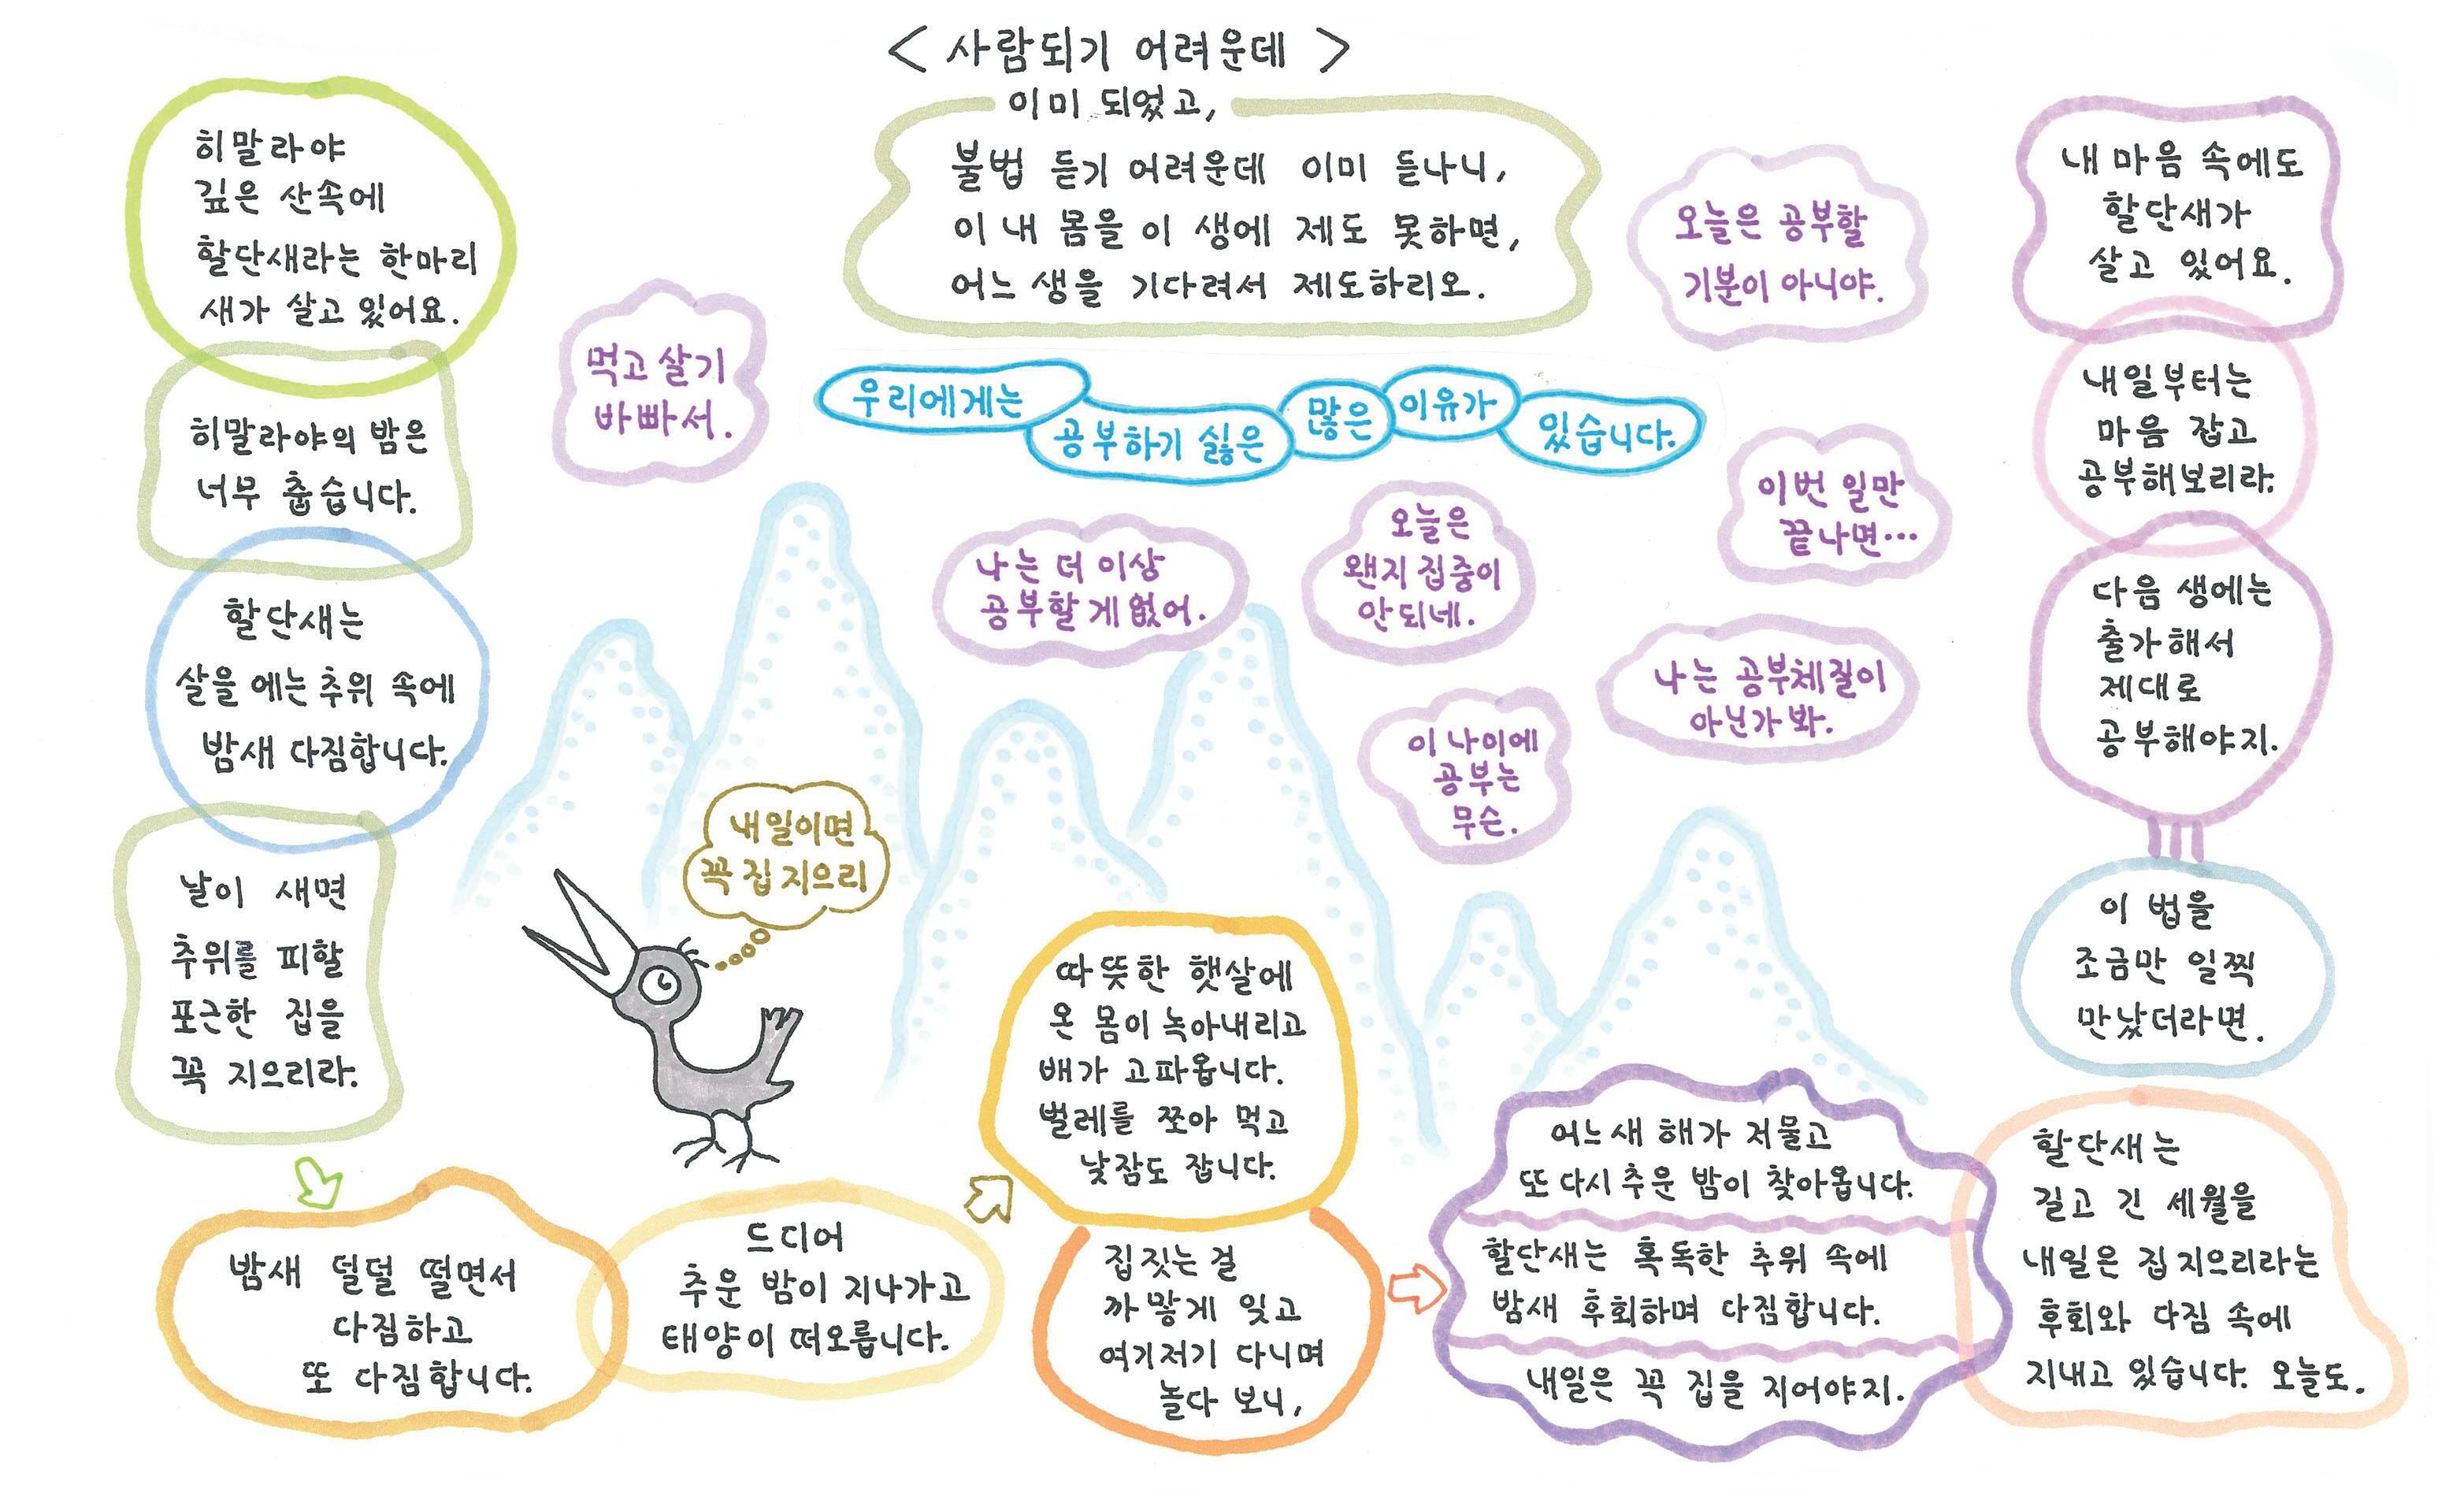 < 사람되기 어려운데 >
이미 되었고,
불법 듣기 어려운데 이미 듣나니,
이 내 몸을 이 생에 제도 못하면,
어느 생을 기다려서 제도하리오.
히말라야
깊은 산속에
할단새라는 한마리
새가 살고 있어요.
히말라야의 밤은
너무 춥습니다.
할단새는
살을 에는 추위 속에
밤새 다짐합니다.
날이 새면
추위를 피할
포근한 집을
꼭 지으리라.
밤새 덜덜 떨면서
다짐하고
또 다짐합니다.
드디어
추운 밤이 지나가고
태양이 떠오릅니다.
내일이면
꼭 집 지으리
따뜻한 햇살에
온 몸이 녹아내리고
배가 고파옵니다.
벌레를 쪼아 먹고
낮잠도 잡니다.
집짓는 걸
까맣게 잊고
여기저기 다니며
놀다 보니,
어느새 해가 저물고
또 다시 추운 밤이 찾아옵니다.
할단새는 혹독한 추위 속에
밤새 후회하며 다짐합니다.
내일은 꼭 집을 지어야지.
할단새는
길고 긴 세월을
내일은 집 지으리라는
후회와 다짐 속에
지내고 있습니다. 오늘도.
우리에게는
공부하기 싫은
많은
이유가
있습니다.
먹고 살기
바빠서.
오늘은 공부할
기분이 아니야.
나는 더 이상
공부할 게 없어.
오늘은
왠지 집중이
안되네.
이번 일만
끝나면...
나는 공부체질이
아닌가 봐.
이 나이에
공부는
무슨.
내 마음 속에도
할단새가
살고 있어요.
내일부터는
마음 잡고
공부해보리라.
다음 생에는
출가해서
제대로
공부해야지.
이 법을
조금만 일찍
만났더라면.